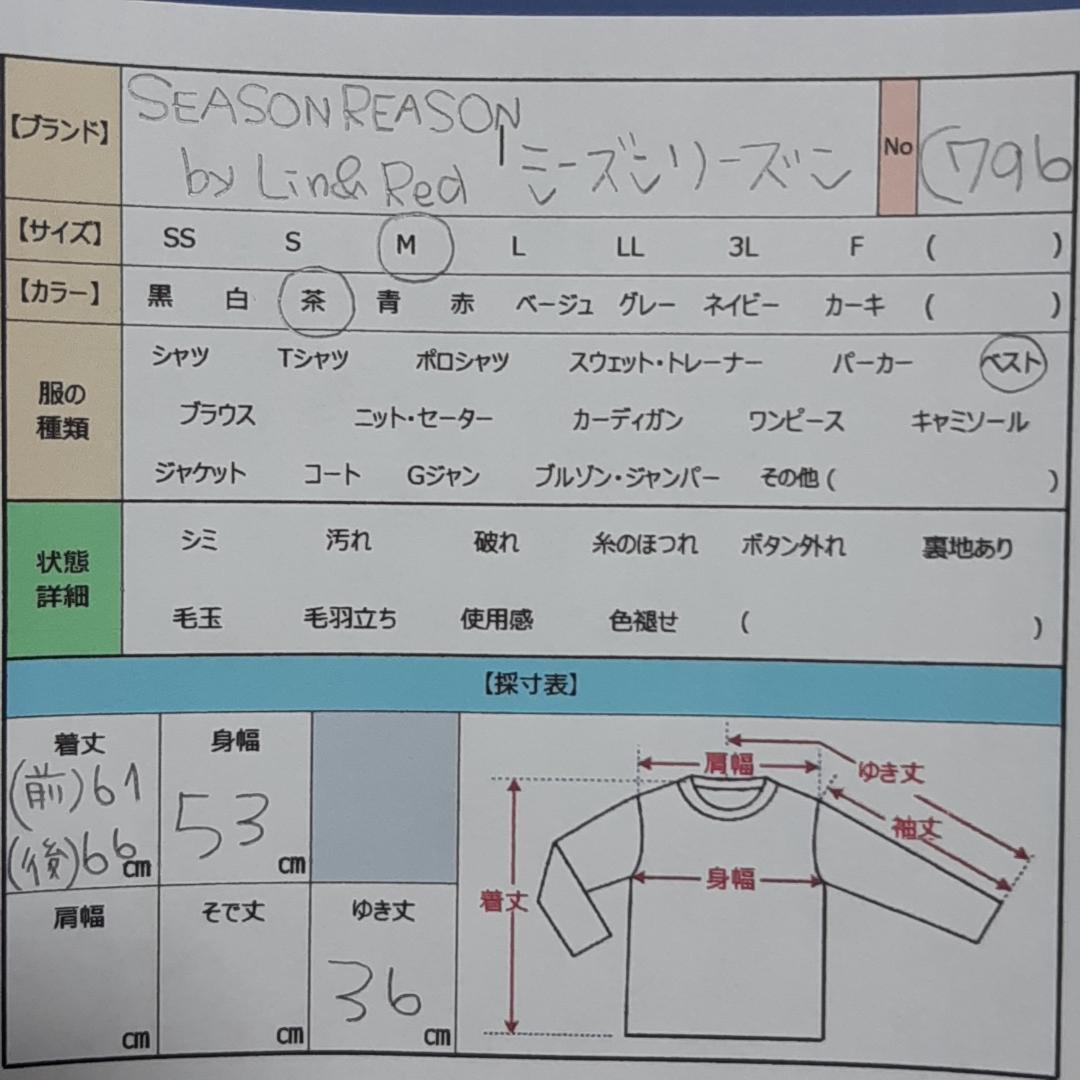 【ブランド】
SEASON REASON
by Lin& Red
シーズンリーズン
No
(796
【サイズ】 SS S M L LL 3L F ( )
【カラー】 黒 白 茶 青 赤 ベージュ グレー ネイビー カーキ ( )
服の
種類
シャツ Tシャツ ポロシャツ スウェット・トレーナー パーカー ベスト
ブラウス ニット・セーター カーディガン ワンピース キャミソール
ジャケット コート Gジャン ブルゾン・ジャンパー その他 ( )
状態
詳細
シミ 汚れ 破れ 糸のほつれ ボタン外れ 裏地あり
毛玉 毛羽立ち 使用感 色褪せ ( )
【採寸表】
着丈
(前)61
(後)66 cm
身幅
53
cm
肩幅
cm
そで丈
cm
ゆき丈
36
cm
肩幅
ゆき丈
袖丈
身幅
着丈